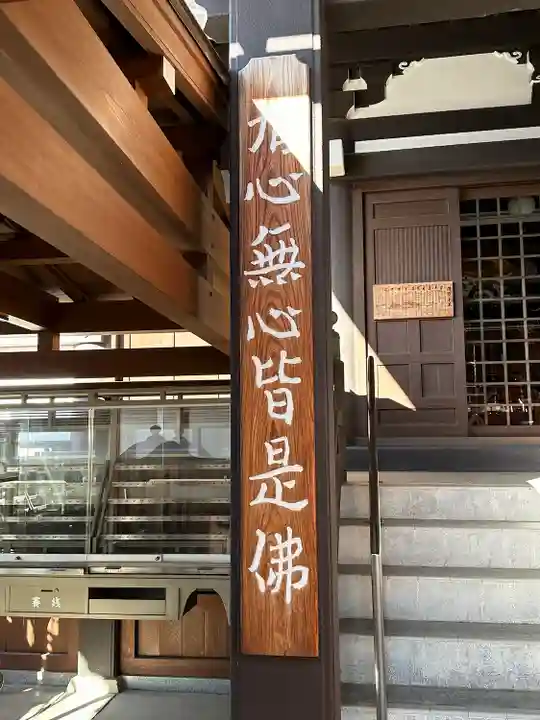 有心無心皆是佛
賽銭